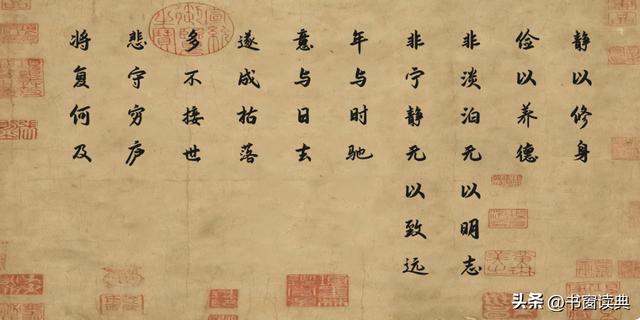 静以修身
俭以养德
非淡泊无以明志
非宁静无以致远
年与时驰
意与日去
遂成枯落
多不接世
悲守穷庐
将复何及
头条 @书窗读典